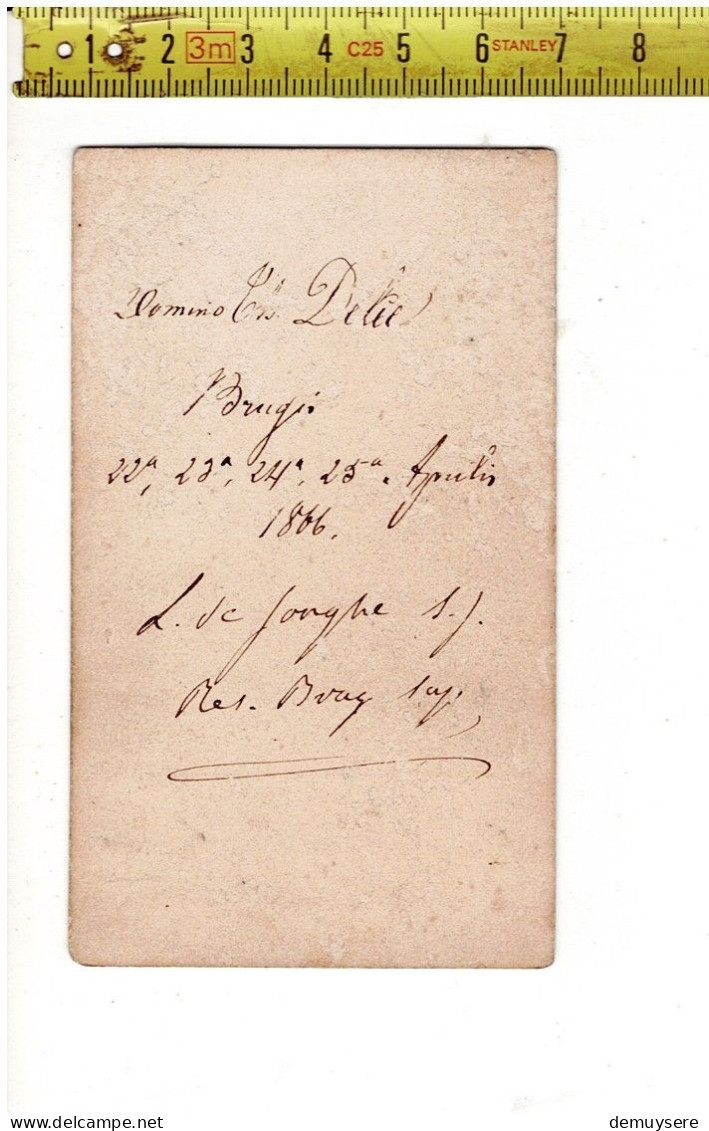 1 2 3m 3 4 C25 5 6 STANLEY 7 8
Domino
Brugis
22ª, 23ª, 24ª, 25ª. Aprilis
1866.
L. de Jonghe S. J.
Res. Brug
demuysere